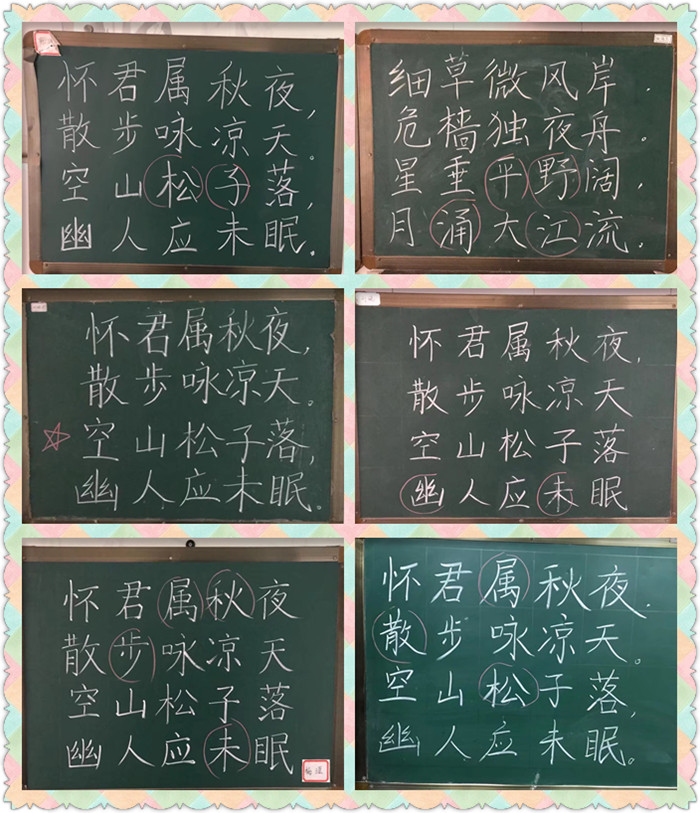 怀君属秋夜，
散步咏凉天。
空山松子落，
幽人应未眠。
细草微风岸，
危樯独夜舟。
星垂平野阔，
月涌大江流。
怀君属秋夜，
散步咏凉天。
空山松子落，
幽人应未眠。
怀君属秋夜，
散步咏凉天
空山松子落
幽人应未眠
怀君属秋夜
散步咏凉天
空山松子落
幽人应未眠
怀君属秋夜，
散步咏凉天。
空山松子落，
幽人应未眠。